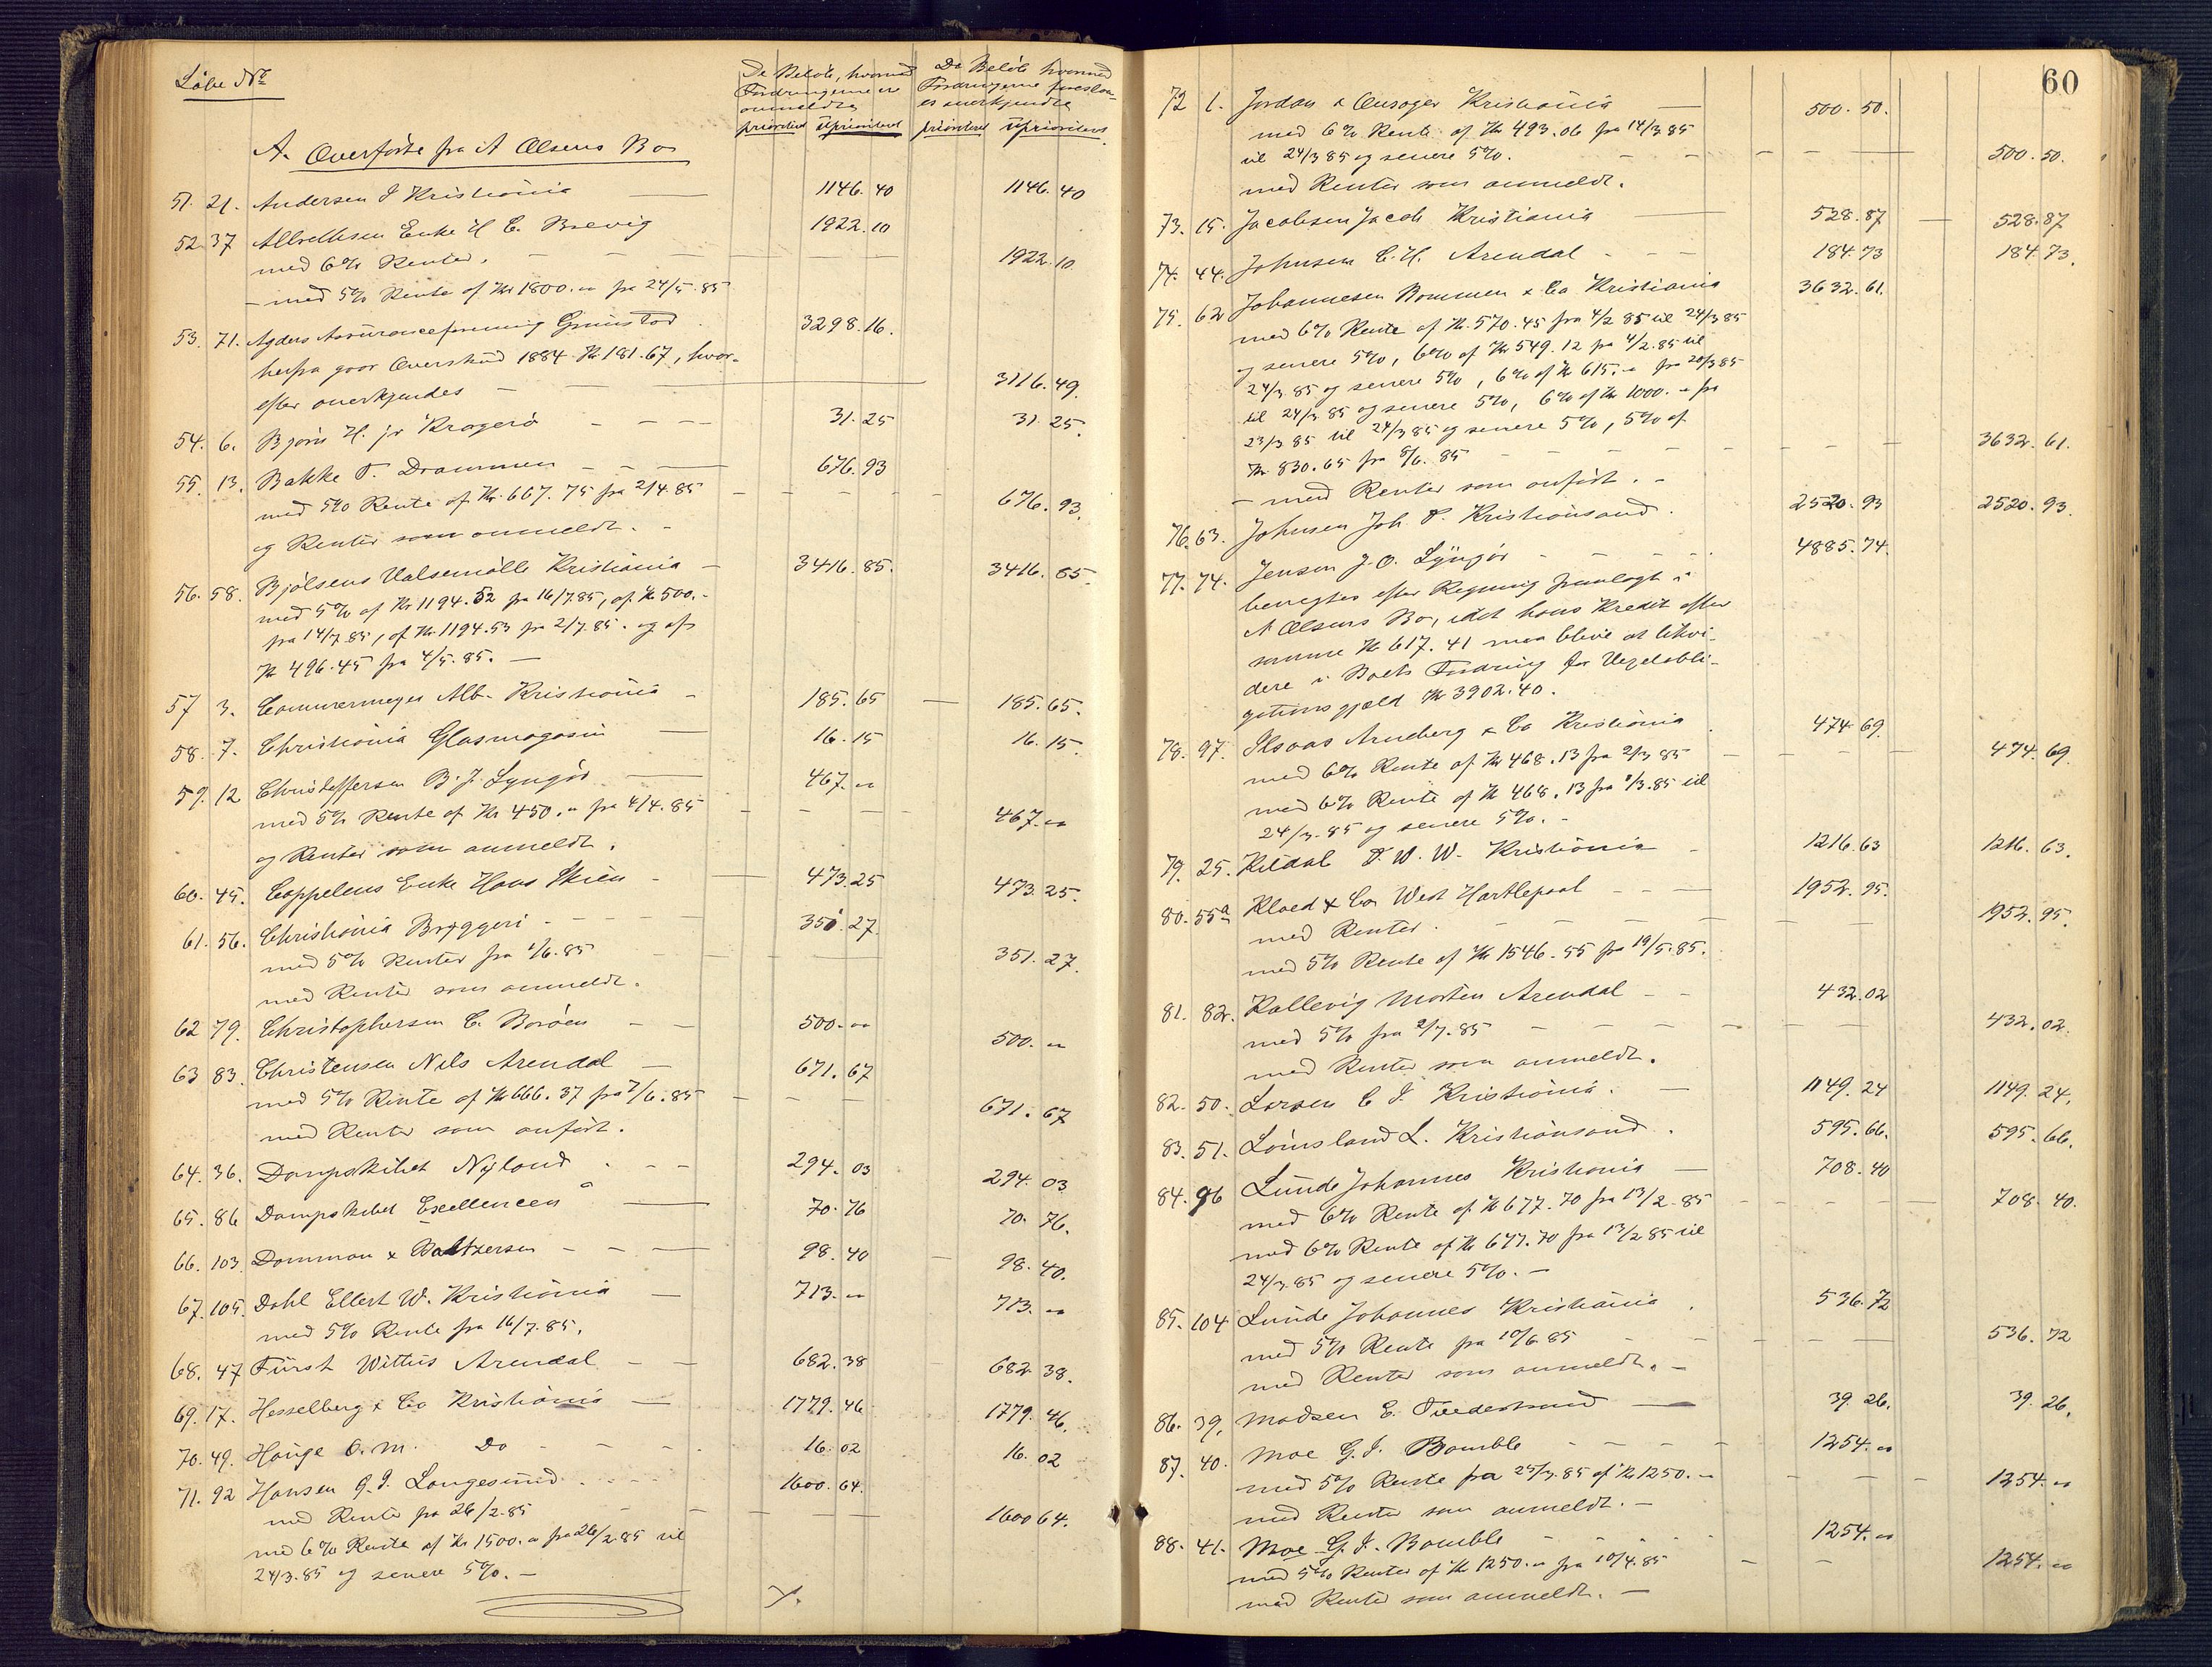 Löbe No
De Beløb, hvormed Fordringerne er anmeldte
prioritert uprioritert
De Beløb hvormed Fordringerne foreslaaes anerkjendte
prioritert uprioritert
A. Overförte fra A Olsens Bo
51. 21. Andersen J Kristiania 1146.40 1146.40
52. 37 Albrethsen Enke H C. Brevig 1922.10
med 6% Renter. 1922.10
- med 5% Rente af Kr 1800.- fra 24/5.85
53. 71. Agders Assuranceforening Grimstad 3298.16.
herfra gaar Overskud 1884 Kr 181.67, hvor-
efter anerkjendes 3116.49.
54. 6. Bjørn H. jr Kragerö 31.25 31.25.
55. 13. Bakke T. Drammen 676.93
med 5% Rente af Kr. 667.75 fra 2/4.85 676.93.
og Renter som anmeldt.
56. 58. Bjölsens Valsemölle Kristiania 3416.85. 3416.85.
med 5% af Kr 1194.52 fra 16/7.85, af Kr 500.-
fra 14/7.85, af Kr. 1194.53 fra 2/7.85. og af
Kr 496.45 fra 4/5.85.
57 3. Cammermeyer Alb. Kristiania 185.65 185.65.
58. 7. Christiania Glasmagasin 16.15 16.15.
59. 12 Christoffersen B. J. Lyngör 467.-
med 5% Rente af Kr 450.- fra 4/4.85 467.-
og Renter som anmeldt.
60. 45. Cappelens Enke Hans Skien 473.25 473.25.
61. 56. Christiania Bryggeri 351.27.
med 5% Renter fra 1/6.85 351.27.
med Renter som anmeldt.
62 79. Christophersen C. Boröen 500.- 500.-
63 83. Christensen Nils Arendal 671.67
med 5% Rente af Kr 666.37 fra 7/6.85 671.67
med Renter som anfört.
64. 36. Dampskibet Nyland 294.03 294.03
65. 86 Dampskibet Excellencen 70.76 70.76.
66. 103. Damman & Baltzersen 98.40 98.40.
67. 105. Dahl Ellert W. Kristiania 713.- 713.-
med 5% Rente fra 16/7.85.
68. 47 Fürst Wittus Arendal 682.38 682.38.
69. 17. Hesselberg & Co Kristiania 1779.46 1779.46.
70. 49. Hauge O. M. Do 16.02 16.02
71. 92 Hansen G. J. Langesund 1600.64.
med Renter fra 26/2.85 1600 64.
med 6% Rente af Kr 1500.- fra 26/2.85 til
24/3.85 og senere 5%.
60
72 1. Jordan & Kristiania 500.50.
med 6% Rente af Kr 493.06 fra 14/3.85
til 24/3 85 og senere 5%. 500.50.
med Renter som anmeldt.
73. 15. Jacobsen Jacob Kristiania 528.87 528.87
74. 44. Johnsen C. H. Arendal 184.73 184.73.
75. 62 Johannesen Bommen & Co Kristiania 3632.61.
med 6% Rente af Kr. 570.45 fra 4/2 85 til 24/3 85
og senere 5%, 6% af Kr 549.12 fra 4/2.85 til
24/3.85 og senere 5%, 6% af Kr 615.- fra 20/3 85
til 24/3 85 og senere 5%, 6% af Kr 1000.- fra
23/3 85 til 24/3 85 og senere 5%, 5% af
Kr. 830.65 fra 5/6.85 3632.61.
- med Renter som anfört.
76. 63. Johnsen Joh. T. Kristiansand. 2520.93 2520.93.
77. 74. Jensen J. O. Lyngör 4885.74.
benegtes efter Regning fremlagt i
A Olsens Bo, idet hans Kredit efter
samme Kr 617.41 maa blive at likvi-
dere i Boets Fordring for Vexelobli-
gationsgjæld Kr 3902.40.
78. 97. Isaas Arneberg & Co Kristiania 474.69.
med 6% Rente af Kr 468.13 fra 2/3.85 474.69.
med 6% Rente af Kr 468.13 fra 2/3.85 til
24/3.85 og senere 5%.
79. 25. Kildal T. W. W. Kristiania 1216.63 1216.63.
80. 55a Kloed & Co West Hartlepool 1952.95.
med Renter. 1952.95.
med 5% Rente af Kr 1546.55 fra 19/5.85.
81. 82. Kallevig Morten Arendal 432.02
med 5% fra 2/7.85 432.02.
med Renter som anmeldt.
82. 50. Larsen C J. Kristiania. 1149.24 1149.24.
83. 51. Løinsland L. Kristiansand. 595.66. 595.66.
84. 96 Lunde Johannes Kristiania 708.40
med 6% Rente af Kr 677.70 fra 13/2.85 708.40.
med 6% Rente af Kr 677.70 fra 13/2 85 til
24/3.85 og senere 5%.
85. 104 Lunde Johannes Kristiania. 536.72
med 5% Rente fra 10/6 85 536.72
med Renter som anmeldt.
86. 39. Madsen E. Tvedestrand 39.26. 39.26.
87. 40. Moe G. J. Bamble 1254.-
med 5% Rente fra 25/3.85 af Kr 1250.- 1254.-
med Renter som anmeldt.
88. 41. Moe G. J. Bamble 1254.-
med 5% Renter af Kr 1250.- fra 10/4.85 1254.-
med Renter som anmeldt.